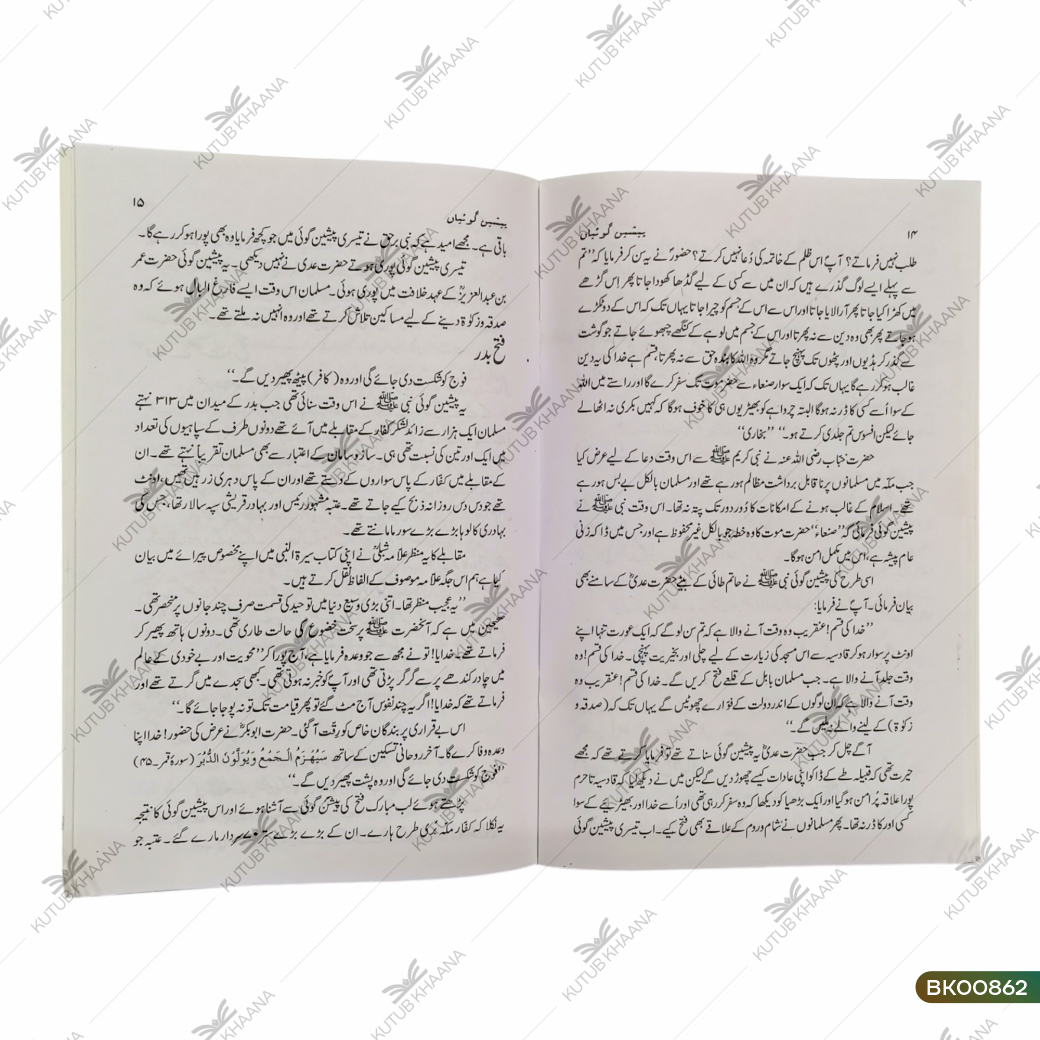 ۱۴
پیشین گوئیاں
طلب نہیں فرماتے؟ آپ اس ظلم کے خاتمہ کی دُعا نہیں کرتے؟ حضورؐ نے یہ سن کر فرمایا کہ ’’تم
سے پہلے ایسے لوگ گذرے ہیں کہ ان میں سے کسی کے لیے گڈھا کھودا جاتا پھر اِس گڑھے
میں کھڑا کیا جاتا پھر آرا لایا جاتا اور اس سے اس کے جسم کو چیرا جاتا یہاں تک کہ اس کے دو ٹکڑے
ہو جاتے پھر بھی وہ دین سے نہ پھرتا اور اس کے جسم میں لوہے کے کنگھے چبھوئے جاتے جو گوشت
سے گذر کر ہڈیوں اور پٹھوں تک پہنچ جاتے مگر وہ اللہ کا بندہ حق سے نہ پھرتا، قسم ہے خدا کی یہ دین
غالب ہو کر رہے گا یہاں تک کہ ایک سوار صنعاء سے حضرموت تک سفر کرے گا اور راستے میں اللہ
کے سوا اُسے کسی کا ڈر نہ ہوگا البتہ چرواہے کو بھیڑیوں ہی کا خوف ہوگا کہ کہیں بکری نہ اٹھا لے
جائے لیکن افسوس تم جلدی کرتے ہو۔‘‘ ’’بخاری‘‘
حضرت خبّاب رضی اللہ عنہ نے نبی کریم ﷺ سے اس وقت دعا کے لیے عرض کیا
جب مکہ میں مسلمانوں پر ناقابل برداشت مظالم ہو رہے تھے اور مسلمان بالکل بے بس ہو رہے
تھے۔ اسلام کے غالب ہونے کے امکانات کا دور دور تک پتہ نہ تھا۔ اس وقت نبی ﷺ نے
پیشین گوئی فرمائی کہ ’’صنعاء‘‘ حضرموت کا وہ خطہ جو بالکل غیر محفوظ ہے اور جس میں ڈاکہ زنی
عام پیشہ ہے، اس میں مکمل امن ہوگا۔
اسی طرح کی پیشین گوئی نبی ﷺ نے حاتم طائی کے بیٹے حضرت عدیؓ کے سامنے بھی
بیان فرمائی۔ آپؐ نے فرمایا:
’’خدا کی قسم! عنقریب وہ وقت آنے والا ہے کہ تم سن لو گے کہ ایک عورت تنہا اپنے
اونٹ پر سوار ہو کر قادسیہ سے اس مسجد کی زیارت کے لیے چلی اور بخیریت پہنچی۔ خدا کی قسم! وہ
وقت جلد آنے والا ہے۔ جب مسلمان بابل کے قلعے فتح کریں گے۔ خدا کی قسم! عنقریب وہ
وقت آنے والا ہے کہ ان لوگوں کے اندر دولت کے فوّارے چھوٹیں گے یہاں تک کہ (صدقہ و
زکوٰۃ) کے لینے والے نہ ملیں گے۔‘‘
آگے چل کر جب حضرت عدیؓ یہ پیشین گوئی سناتے تھے تو فرمایا کرتے تھے کہ مجھے
حیرت تھی کہ قبیلہ طے کے ڈاکو اپنی عادات کیسے چھوڑ دیں گے لیکن میں نے دیکھ لیا کہ قادسیہ تا حرم
پورا علاقہ پُرامن ہو گیا اور ایک بڑھیا کو دیکھا کہ وہ سفر کر رہی تھی اور اُسے خدا اور بھیڑیے کے سوا
کسی اور کا ڈر نہ تھا۔ پھر مسلمانوں نے شام و روم کے علاقے بھی فتح کیے۔ اب تیسری پیشین گوئی
۱۵
پیشین گوئیاں
باقی ہے۔ مجھے امید ہے کہ نبی برحق نے تیسری پیشین گوئی میں جو کچھ فرمایا وہ بھی پورا ہو کر رہے گا۔
تیسری پیشین گوئی پوری ہوتے حضرت عدی نے نہیں دیکھی۔ یہ پیشین گوئی حضرت عمر
بن عبدالعزیزؒ کے عہد خلافت میں پوری ہوئی۔ مسلمان اس وقت ایسے فارغ البال ہوئے کہ وہ
صدقہ و زکوٰۃ دینے کے لیے مساکین تلاش کرتے تھے اور وہ انہیں نہ ملتے تھے۔
فتح بدر
فوج کو شکست دی جائے گی اور وہ (کافر) پیٹھ پھیر دیں گے۔‘‘
یہ پیشین گوئی نبی ﷺ نے اس وقت سنائی تھی جب بدر کے میدان میں ۳۱۳ نہتے
مسلمان ایک ہزار سے زائد لشکر کفار کے مقابلے میں آئے تھے دونوں طرف کے سپاہیوں کی تعداد
میں ایک اور تین کی نسبت تھی ہی۔ ساز و سامان کے اعتبار سے بھی مسلمان تقریباً نہتے تھے۔ ان
کے مقابلے میں کفار کے پاس سواروں کے دستے تھے اور ان کے پاس دہری زرہیں تھیں، اونٹ
تھے جو دس دس روزانہ ذبح کیے جاتے تھے۔ عتبہ مشہور رئیس اور بہادر قریشی سپہ سالار تھا، جس کی
بہادری کا لوہا بڑے بڑے سورما مانتے تھے۔
مقابلے کا یہ منظر علامہ شبلیؒ نے اپنی کتاب سیرۃ النبی میں اپنے مخصوص پیرائے میں بیان
کیا ہے ہم اس جگہ علامہ موصوف کے الفاظ نقل کرتے ہیں۔
’’یہ عجیب منظر تھا۔ اتنی بڑی وسیع دنیا میں توحید کی قسمت صرف چند جانوں پر منحصر تھی۔
صحیحین میں ہے کہ آنحضرت ﷺ پر سخت خضوع کی حالت طاری تھی۔ دونوں ہاتھ پھیر کر
فرماتے تھے۔ خدایا! تو نے مجھ سے جو وعدہ فرمایا ہے، آج پورا کر‘‘ محویت اور بے خودی کے عالم
میں چادر کندھے پر سے گر گر پڑتی تھی اور آپ کو خبر نہ ہوتی تھی۔ کبھی سجدے میں گرتے تھے اور
فرماتے تھے کہ خدایا! اگر یہ چند نفوس آج مٹ گئے تو پھر قیامت تک تو نہ پوجا جائے گا۔‘‘
اس بے قراری پر بندگان خاص کو رقت آ گئی۔ حضرت ابوبکرؓ نے عرض کی حضور! خدا اپنا
وعدہ وفا کرے گا۔ آخر روحانی تسکین کے ساتھ سَيُهْزَمُ الْجَمْعُ وَيُوَلُّونَ الدُّبُرَ (سورۂ قمر۔۴۵)
’’فوج کو شکست دی جائے گی اور وہ پشت پھیر دیں گے۔‘‘
پڑھتے ہوئے لب مبارک فتح کی پیشن گوئی سے آشنا ہوئے اور اس پیشین گوئی کا نتیجہ
یہ نکلا کہ کفار مکہ بُری طرح ہارے۔ ان کے بڑے بڑے ستر ۷۰ سردار مارے گئے۔ عتبہ جو
KUTUB KHAANA
BK00862